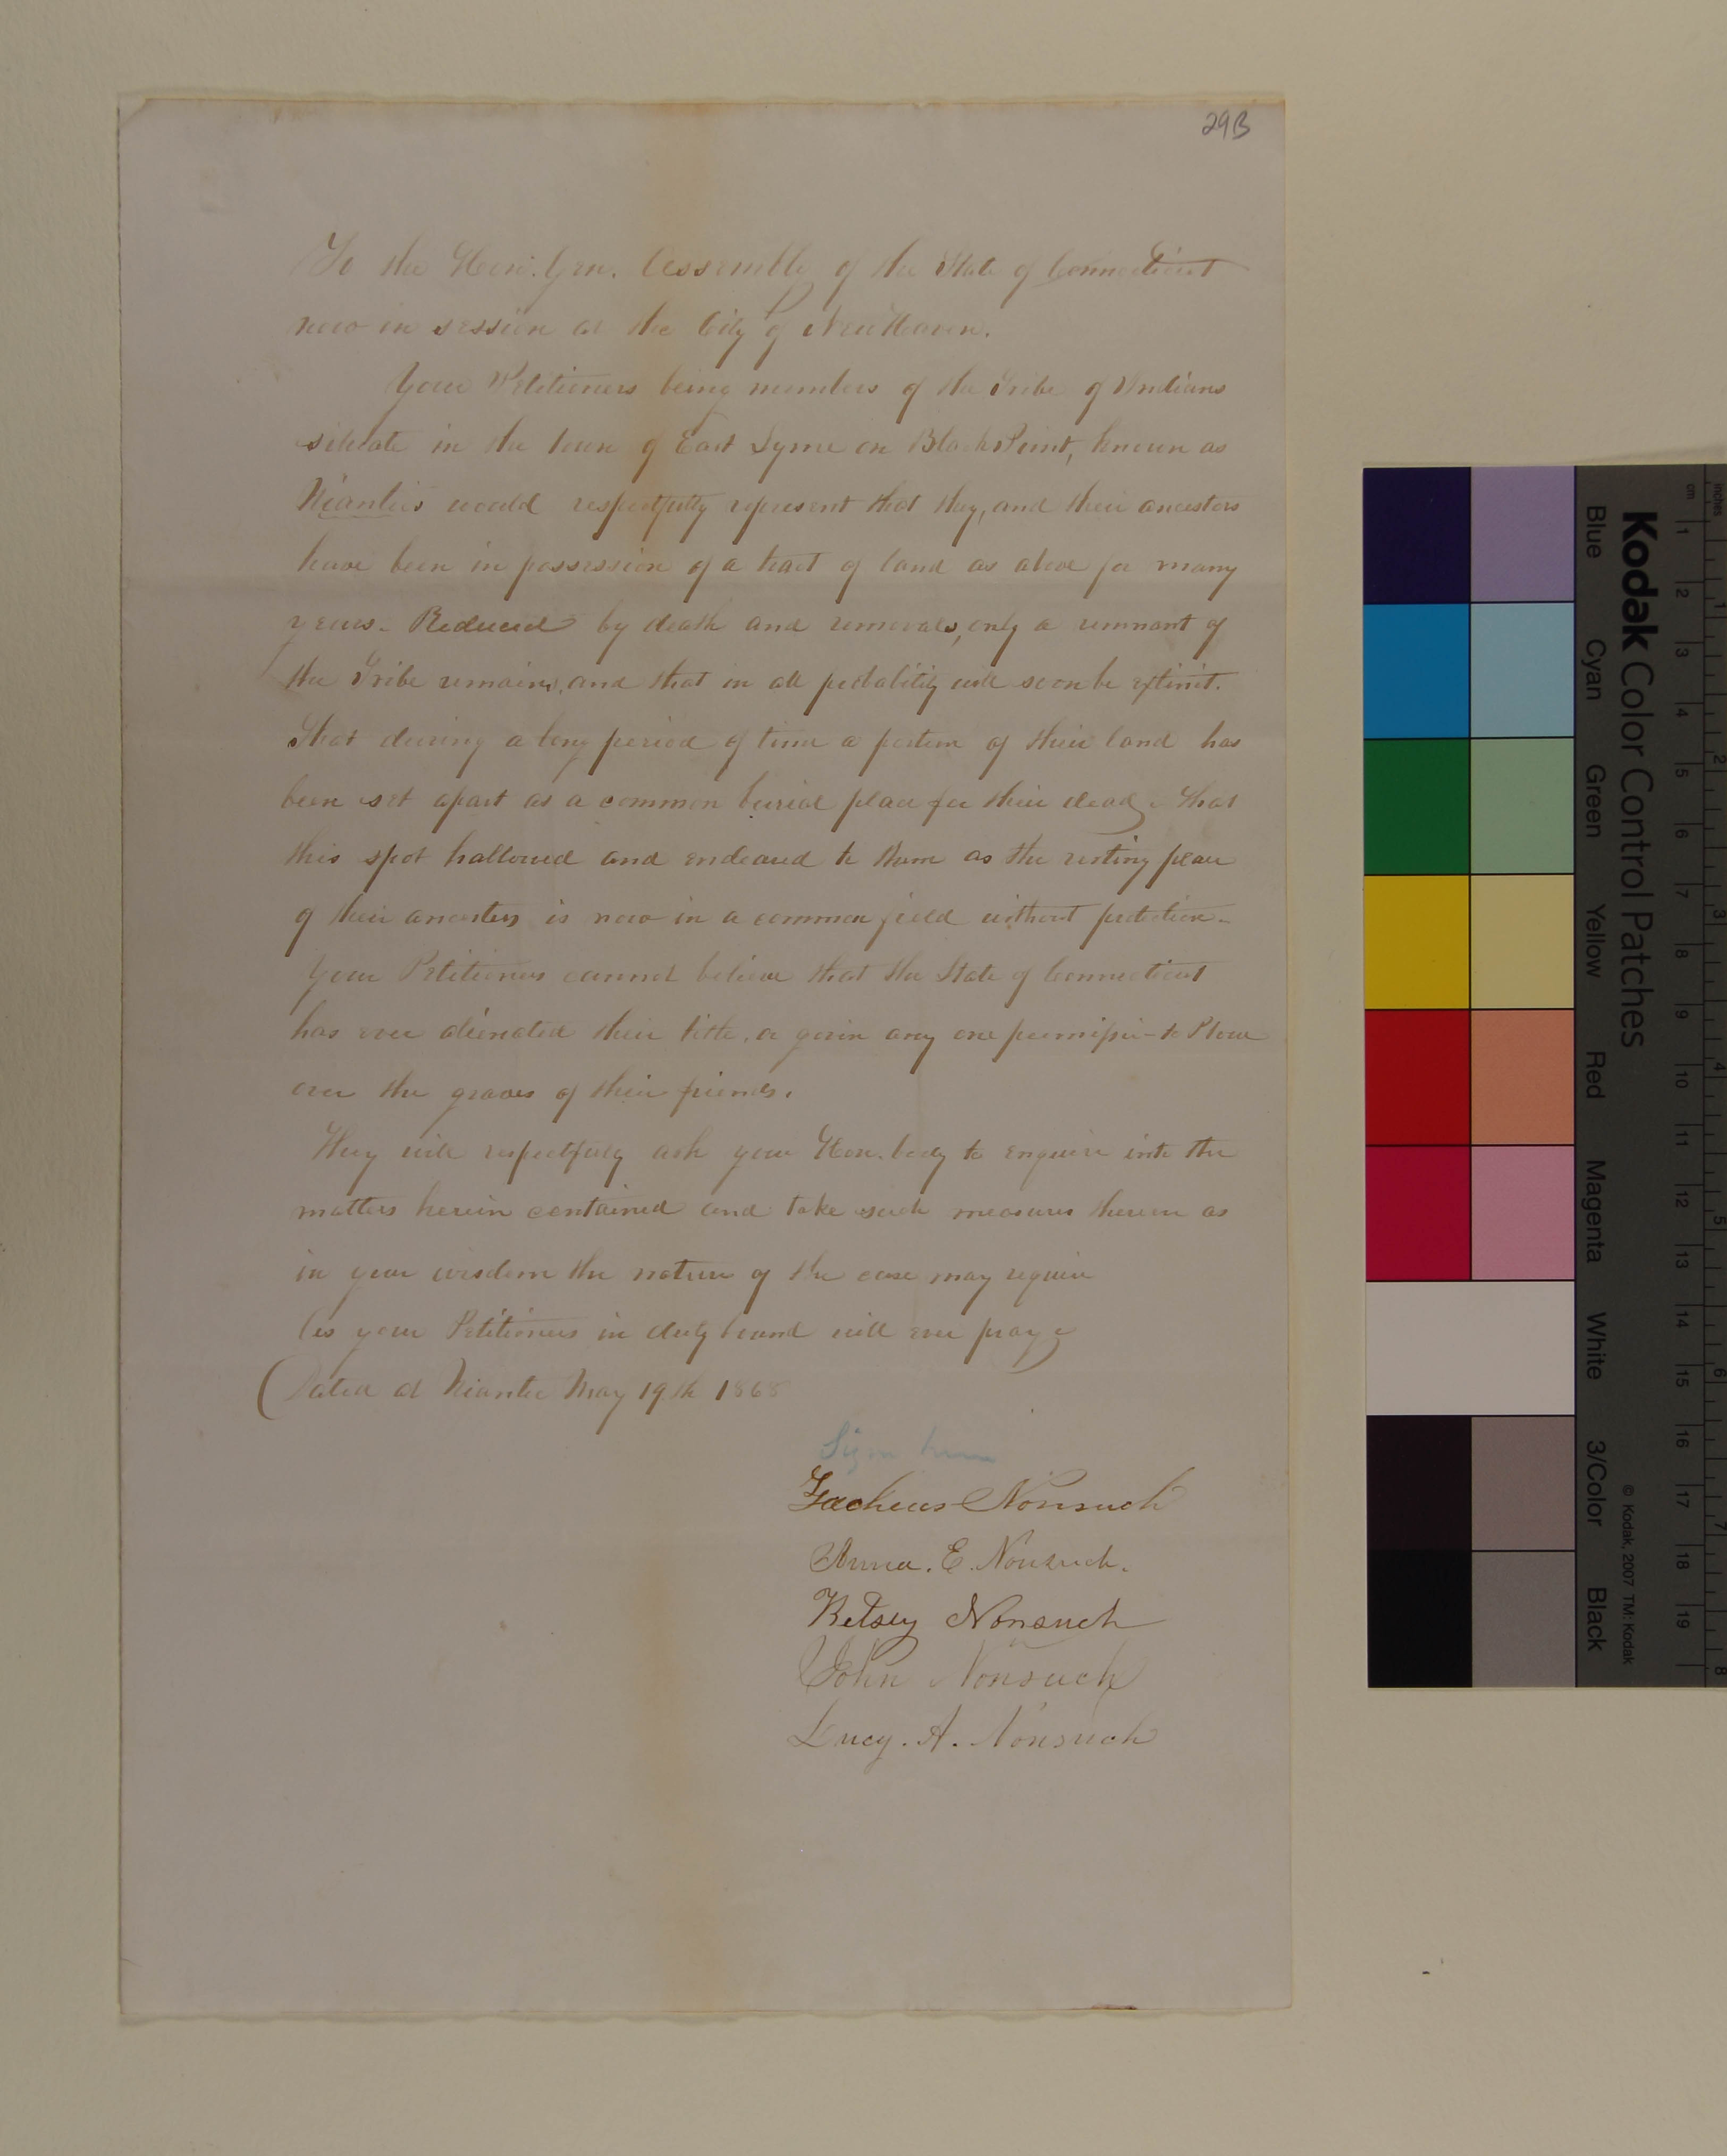 29B
To the Hon. Gen. Assembly of the State of Connecticut
now in session at the City of New Haven.
Your Petitioners being members of the Tribe of Indians
situate in the town of East Lyme on Black Point, known as
Niantics would respectfully represent that they, and their ancestors
have been in possession of a tract of land as above for many
years. Reduced by death and removals, only a remnant of
the Tribe remains, and that in all probability will soon be extinct.
That during a long period of time a portion of their land has
been set apart as a common burial place for their dead, that
this spot hallowed and endeared to them as the resting place
of their ancestors is now in a common field without protection.
Your Petitioners cannot believe that the State of Connecticut
has ever alienated their title, or given any one permission to Plow
over the graves of their friends.
They will respectfully ask your Hon. body to enquire into the
matters herein contained and take such measures therein as
in your wisdom the nature of the case may require
As your Petitioners in duty bound will ever pray
Dated at Niantic May 19th 1868
Sign here
Zacheus Nonsuch
Anna. E. Nonsuch.
Betsey Nonsuch
John Nonsuch
Lucy. A. Nonsuch
Kodak Color Control Patches
© Kodak, 2007 TM: Kodak
Blue Cyan Green Yellow Red Magenta White 3/Color Black
cm 1 2 3 4 5 6 7 8 9 10 11 12 13 14 15 16 17 18 19
inches 1 2 3 4 5 6 7 8